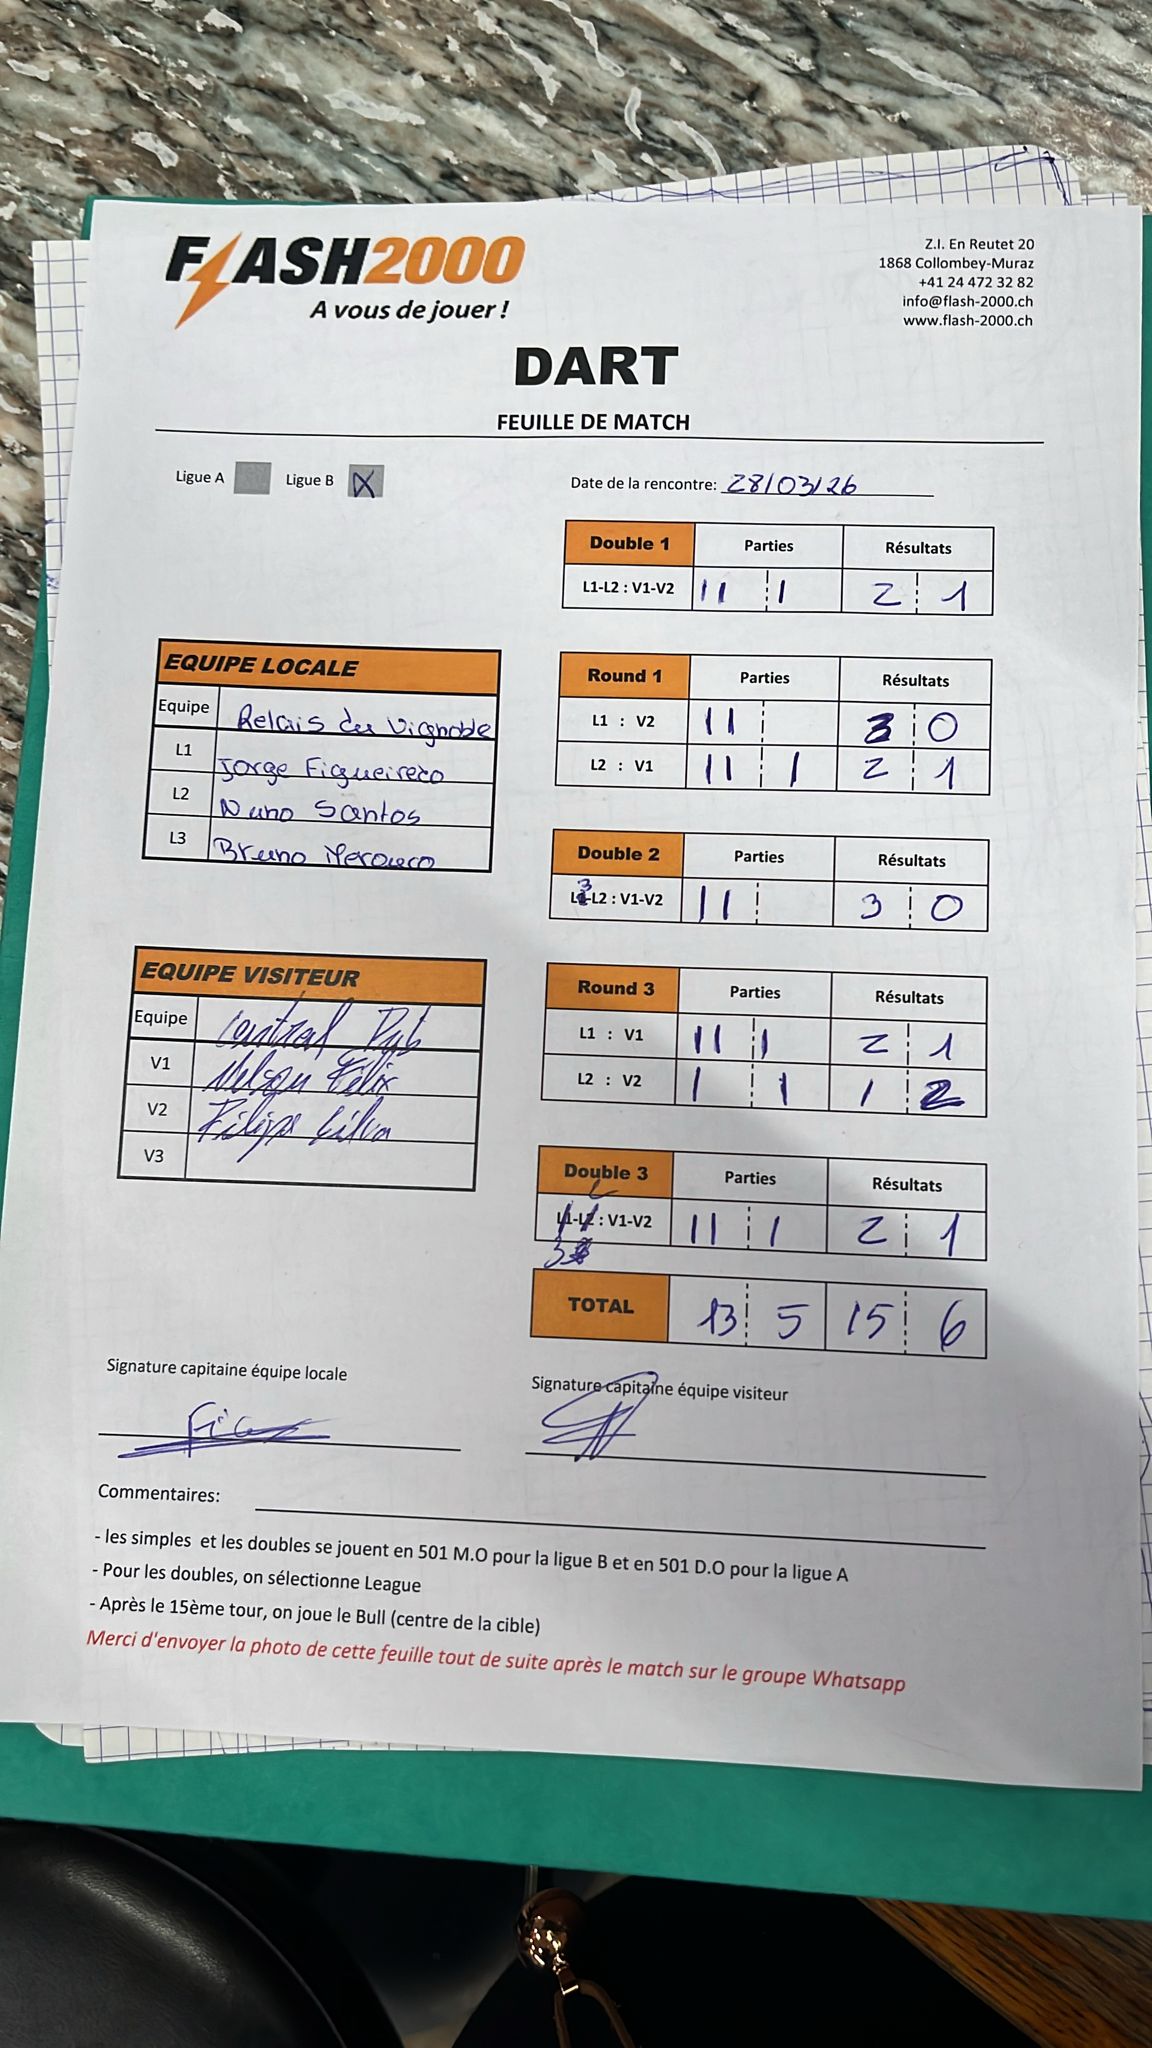 FLASH2000
A vous de jouer !
Z.I. En Reutet 20
1868 Collombey-Muraz
+41 24 472 32 82
info@flash-2000.ch
www.flash-2000.ch
DART
FEUILLE DE MATCH
Ligue A Ligue B X
Date de la rencontre: 28/03/26
Double 1 Parties Résultats
L1-L2 : V1-V2 II I 2 1
EQUIPE LOCALE
Equipe Relais du Vignoble
L1 Jorge Figueiredo
L2 Nuno Santos
L3 Bruno
Round 1 Parties Résultats
L1 : V2 II 3 0
L2 : V1 II I 2 1
Double 2 Parties Résultats
L3-L2 : V1-V2 II 3 0
EQUIPE VISITEUR
Equipe Central Pub
V1 Nelson Félix
V2 Filipe Silva
V3
Round 3 Parties Résultats
L1 : V1 II I 2 1
L2 : V2 I I 1 2
Double 3 Parties Résultats
L1-L2 : V1-V2 II I 2 1
TOTAL 13 5 15 6
Signature capitaine équipe locale
Signature capitaine équipe visiteur
Commentaires:
- les simples et les doubles se jouent en 501 M.O pour la ligue B et en 501 D.O pour la ligue A
- Pour les doubles, on sélectionne League
- Après le 15ème tour, on joue le Bull (centre de la cible)
Merci d'envoyer la photo de cette feuille tout de suite après le match sur le groupe Whatsapp